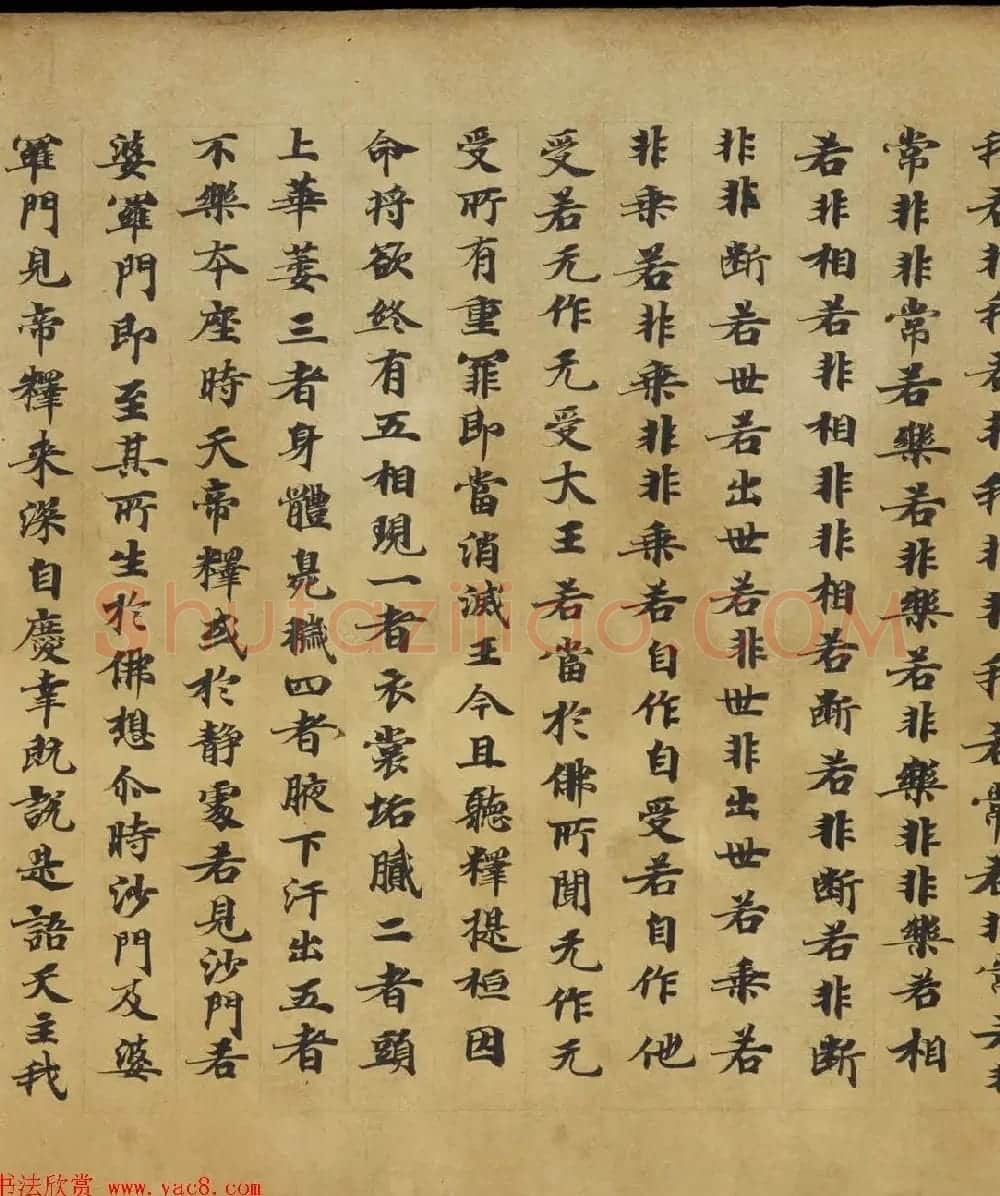 我若非我若非我非非我若常若非常若非
常非非常若樂若非樂若非樂非非樂若相
若非相若非相非非相若断若非断若非断
非非断若世若出世若非世非出世若乗若
非乗若非乗非非乗若自作自受若自作他
受若无作无受大王若當於佛所聞无作无
受所有重罪即當消滅王今且聽釋提桓因
命将欲終有五相現一者衣裳垢膩二者頭
上華萎三者身體臭穢四者腋下汗出五者
不樂本座時天帝釋或於静處若見沙門若
婆羅門即至其所生於佛想尒時沙門及婆
羅門見帝釋来深自慶幸既說是語天主我
Shufaziliao.COM
书法欣赏 www.yac8.com